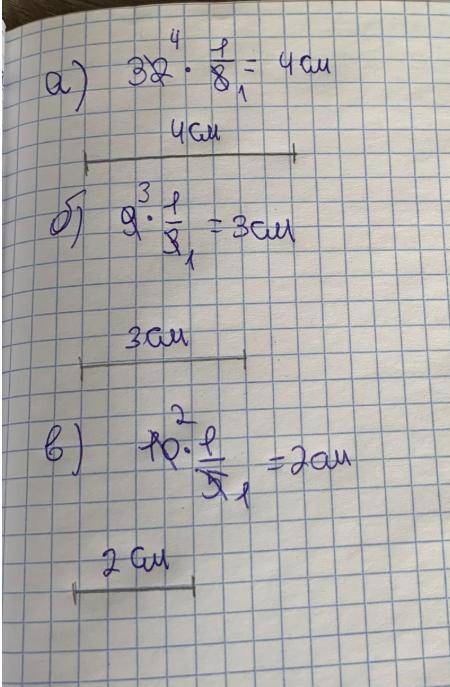 а) 32⁴ · 1/8₁ = 4см
4см
б) 9³ · 1/3₁ = 3см
3см
в) 10² · 1/5₁ = 2см
2 см